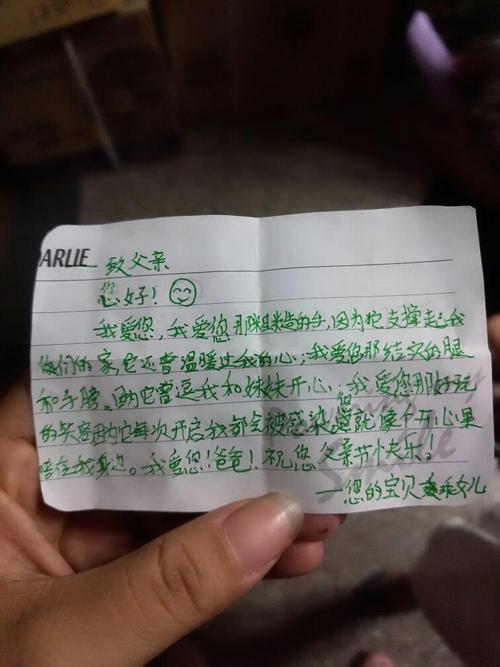 ARLIE 致父亲
您好！
我爱您，我爱您那粗糙的手，因为它支撑起我
们的家，它还曾温暖过我的心；我爱您那结实的腿
和手腕。因它曾逗我和妹妹开心；我爱您那好玩
的笑容因为它每次开启我都会被感染 您就像个开心果
陪在我身边。我爱您！爸爸！祝您父亲节快乐！
—您的宝贝乖女儿